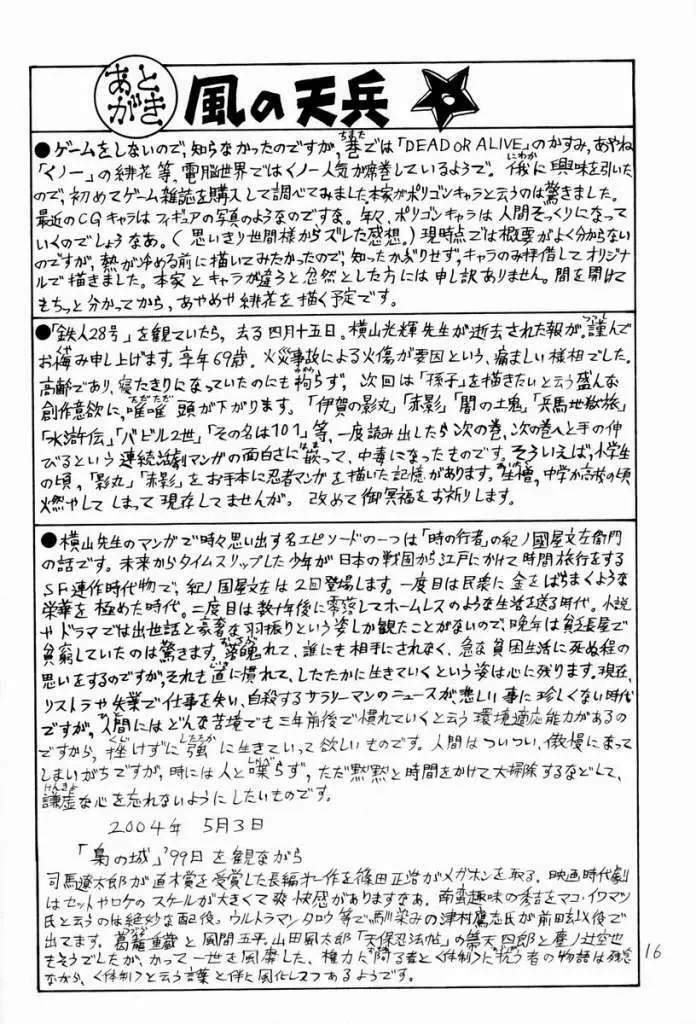 あとがき 風の天兵
●ゲームをしないので、知らなかったのですが、巷では「DEAD OR ALIVE」のかすみ、あやね
「くノ一」の緋花等、電脳世界ではくノ一人気が席巻しているようで。俄に興味を引いた
ので、初めてゲーム雑誌を購入して調べてみました。本家がポリゴンキャラと云うのは驚きました。
最近のCGキャラはフィギュアの写真のようなのですな。年々、ポリゴンキャラは人間そっくりになって
いくのでしょうなあ。(思いきり世間様からズレた感想。)現時点では概要がよく分からない
のですが、熱が冷める前に描いてみたかったので、知ったかぶりせず、キャラのみ拝借してオリジナ
ルで描きました。本家とキャラが違うと忽然とした方には申し訳ありません。間を開けて
もちっと分かってから、あやめや緋花を描く予定です。
●「鉄人28号」を観ていたら、去る四月十五日、横山光輝先生が逝去された報が。謹んで
お悔み申し上げます。享年69歳。火災事故による火傷が要因という、痛ましい様相でした。
高齢であり、寝たきりになっていたのにも拘らず、次回は「孫子」を描きたいと云う盛んな
創作意欲に、唯唯頭が下がります。「伊賀の影丸」「赤影」「闇の土鬼」「兵馬地獄旅」
「水滸伝」「バビル2世」「その名は101」等、一度読み出したら次の巻、次の巻へと手の伸
びるという連続活劇マンガの面白さに嵌って、中毒になったものです。そういえば、小学生
の頃、「影丸」「赤影」をお手本に忍者マンガを描いた記憶があります。生憎、中学か高校の頃
燃やしてしまって現存してませんが。改めて御冥福をお祈りします。
●横山先生のマンガで時々思い出す名エピソードの一つは「時の行者」の紀ノ國屋文左衛門
の話です。未来からタイムスリップした少年が日本の戦国から江戸にかけて時間旅行をする
SF連作時代物で、紀ノ国屋文左は2回登場します。一度目は民衆に金をばらまくような
栄華を極めた時代。二度目は数十年後に零落してホームレスのような生活を送る時代。小説
やドラマでは出世話と豪奢な羽振りという姿しか観たことがないので、晩年は貧乏長屋で
貧窮していたのは驚きます。落魄れて、誰にも相手にされなく、急な貧困生活に死ぬ程の
思いをするのですが、それも直に慣れて、したたかに生きていくという姿は心に残ります。現在、
リストラや失業で仕事を失い、自殺するサラリーマンのニュースが、悲しい事に珍しくない時代
ですが、人間にはどんな苦境でも三年前後で慣れていくと云う環境適応能力があるの
ですから、挫けずに強に生きていって欲しいものです。人間はついつい、傲慢になって
しまいがちですが、時には人と喋らず、ただ黙黙と時間をかけて大掃除するなどして、
謙虚な心を忘れないようにしたいものです。
2004年 5月3日
「梟の城」'99日を観ながら
司馬遼太郎が直木賞を受賞した長編第一作を篠田正浩がメガホンを取る。映画時代劇
はセットやロケのスケールが大きくて爽快感がありますなあ。南蛮趣味の秀吉をマコ・イワマツ
氏と云うのは絶妙な配役。ウルトラマンタロウ等で馴染みの津村鷹志氏が前田玄以役で
出てます。葛籠重蔵と風間五平。山田風太郎「天保忍法帖」の
もそうでしたが、かつて一世を風靡した、権力に阿る者と〈体制〉に抗う者の物語は残念
ながら、〈体制〉と云う言葉と伴に風化しつつあるようです。
16